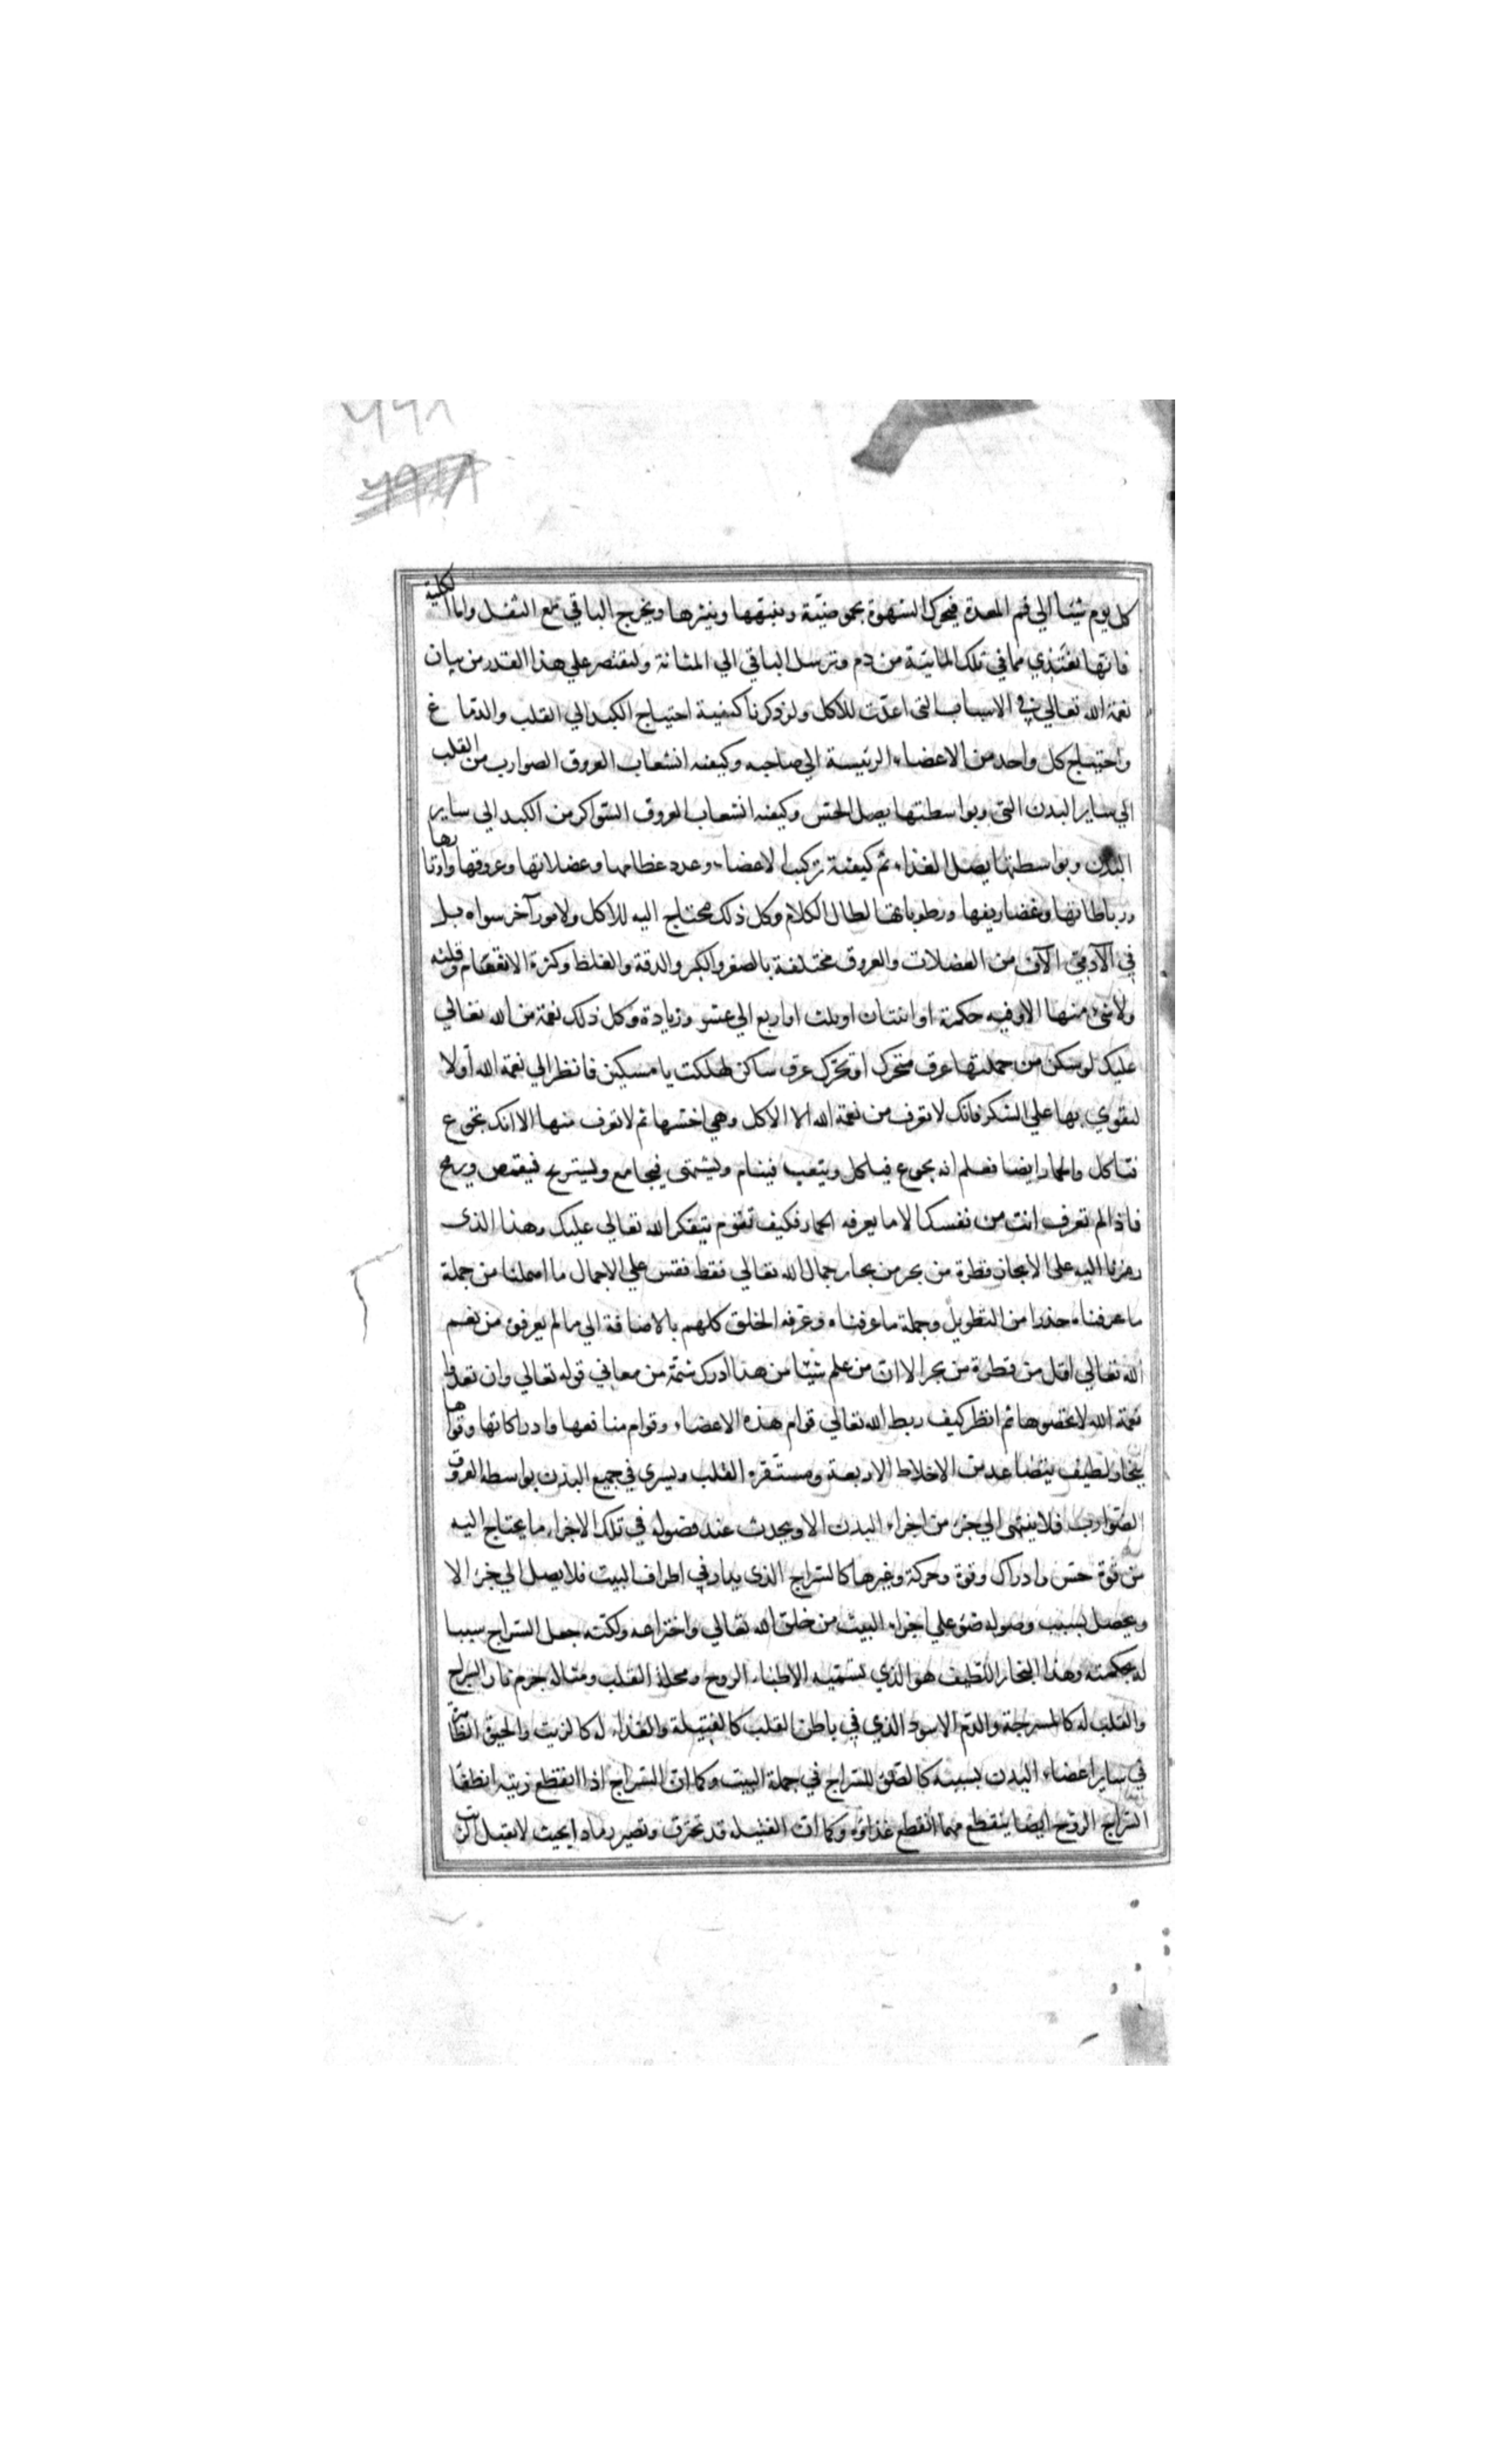 ٤٩٨
كل يوم شيئا الي فم المعدة فيحرك الشهوة بحموضيّة وينبّهها ويثيرها ويخرج الباقي مع الثفل واما الكلية
فانها تغتذي مما في تلك المائيّة من دم وترسل الباقي الي المثانة ولنقتصر علي هذا القدر من بيان
نعمة الله تعالي في الاسباب التي اعدّت للاكل ولو ذكرنا كيفية احتياج الكبد الي القلب والدماغ
واحتياج كل واحد من الاعضاء الرئيسة الي صاحبه وكيفيه انشعاب العروق الضوارب من القلب
الي ساير البدن التي وبواسطتها يصل الحسّ وكيفيه انشعاب العروق السّواكن من الكبد الي ساير
البدن وبواسطتها يصل الغذاء ثم كيفية تركب الاعضاء وعدد عظامها وعضلاتها وعروقها واوتارها
ورباطاتها وغضاريفها ورطوباتها لطال الكلام وكل ذلك محتاج اليه للاكل ولامور آخر سواه بل
في الآدمي الآف من العضلات والعروق مختلفة بالصغر والكبر والدقة والغلظ وكثرة الانقسام وقلته
ولا شئ منها الا وفيه حكمة او اثنتان او ثلث او اربع الي عشر وزيادة وكل ذلك نعمة من الله تعالي
عليك لو سكن من جملتها عرق متحرك او تحرّك عرق ساكن لهلكت يا مسكين فانظر الي نعمة الله أولا
لتقوي بها علي الشكر فانك لا تعرف من نعمة الله الا الاكل وهي اخسّها ثم لا تعرف منها الا انك تجوع
فتاكل والحمار ايضا فعلم انه يجوع فياكل ويتعب فينام ويشتهي فيجامع ويستريح فينهض ويرمح
فاذا لم تعرف انت من نفسك الا ما يعرفه الحمار فكيف تقوم بشكر الله تعالي عليك وهذا الذي
رمزنا اليه علي الايجاز قطرة من بحر من بحار جمال الله تعالي فقط فقس علي الاجمال ما اهملنا من جملة
ما عرفناه حذرا من التطويل وجملة ما عرفناه وعرفه الخلق كلهم بالاضافة الي ما لم يعرفوه من نعم
الله تعالي اقل من قطرة من بحر الا ان من علم شيئا من هذا ادرك شمّة من معاني قوله تعالي وان تعدوا
نعمة الله لا تحصوها ثم انظر كيف ربط الله تعالي قوام هذه الاعضاء وقوام منافعها وادراكاتها وقواها
ببخار لطيف يتصاعد من الاخلاط الاربعة ومستقره القلب ويسري في جميع البدن بواسطه العروق
الضوارب فلا ينتهي الي جزء من اجزاء البدن الا ويحدث عند وصوله في تلك الاجزاء ما يحتاج اليه
من قوة حسّ وادراك وقوة وحركة وغيرها كالسّراج الذي يدار في اطراف البيت فلا يصل الي جزء الا
ويحصل بسبب وصوله ضوء علي اجزاء البيت من خلق الله تعالي واختراعه ولكنه جعل السّراج سببا
له بحكمته وهذا البخار اللطيف هو الذي تسمّيه الاطباء الروح ومحله القلب ومثاله جرم نار السراج
والقلب له كالمسرجة والدّم الاسود الذي في باطن القلب كالفتيلة والغذاء له كالزيت والحيوة الظاهرة
في ساير اعضاء البدن بسببه كالضوء للسّراج في جملة البيت وكما ان السّراج اذا انقطع زيته انطفا
السّراج الروح ايضا ينقطع مهما انقطع غذاؤه وكما ان الفتيله قد تحترق وتصير رمادا بحيث لا تقبل الزيت